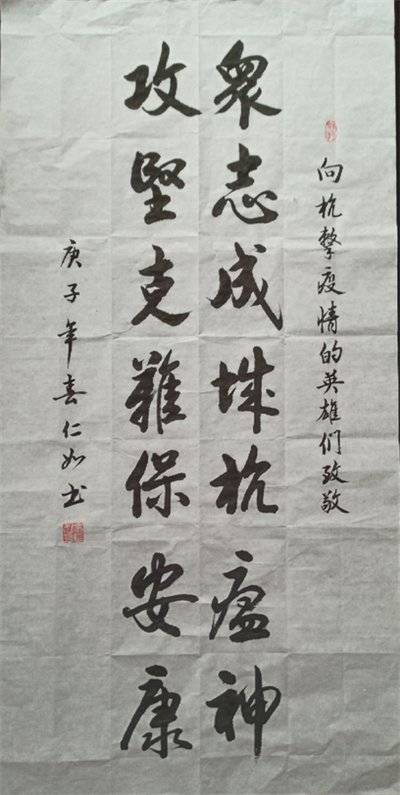 向抗擊疫情的英雄们致敬
眾志成城抗瘟神
攻堅克難保安康
庚子年喜仁如书